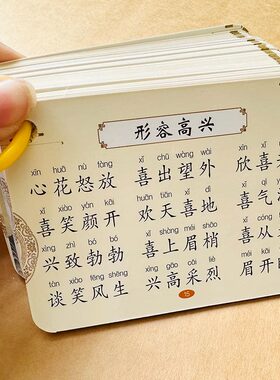 形容高兴
xīn huā nù fàng xǐ chū wàng wài xīn xǐ
心花怒放 喜出望外 欣喜
xǐ xiào yán kāi huān tiān xǐ dì xǐ qì
喜笑颜开 欢天喜地 喜气
xìng zhì bó bó xǐ shàng méi shāo xǐ cóng
兴致勃勃 喜上眉梢 喜从
tán xiào fēng shēng xìng gāo cǎi liè méi kāi
谈笑风生 兴高采烈 眉开
15